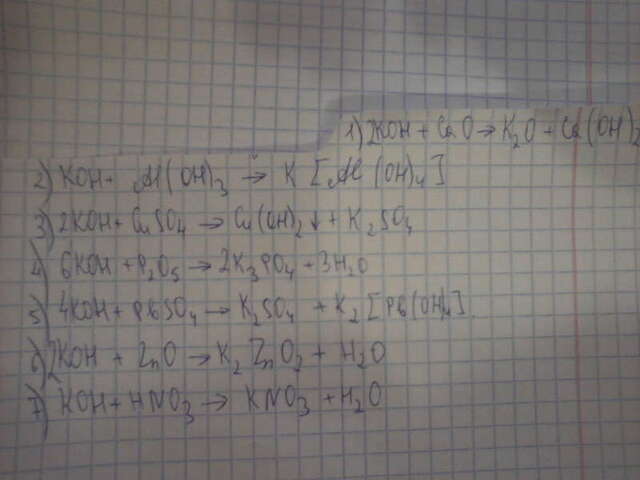 1) 2KOH + CaO → K₂O + Ca(OH)₂
2) KOH + Al(OH)₃ → K[Al(OH)₄]
3) 2KOH + CuSO₄ → Cu(OH)₂↓ + K₂SO₄
4) 6KOH + P₂O₅ → 2K₃PO₄ + 3H₂O
5) 4KOH + PbSO₄ → K₂SO₄ + K₂[Pb(OH)₄].
6) 2KOH + ZnO → K₂ZnO₂ + H₂O
7) KOH + HNO₃ → KNO₃ + H₂O